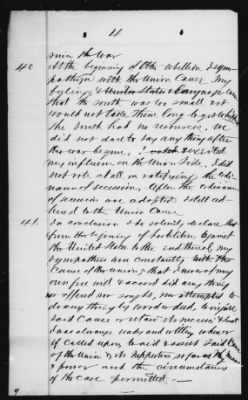 11
min the war
40 At the beginning of the rebellion I sym-
pathized with the Union Cause. My
feeling &
that the South was too small
would not take them long to get whipped
the South had no resources. We
did not dare to say any thing after
the war begun. I exerted
my influence on the Union side. I did
not vote at all on ratifying the ordi-
nance of secession. After the ordinance
of secession was adopted I still ad-
hered to the Union Cause.
41. In conclusion I do solemnly declare that
from the beginning of hostilities against
the United States to the end thereof, my
sympathies were constantly with the
Cause of the Union; that I never of my
own free will & accord did any thing
or offered or sought, or attempted to
do any thing by word or deed, to injure
said Cause or retard its success & that
I was always ready and willing when
if called upon, to aid & assist said Cause
of the Union & its supporters so far as my means
& power and the circumstances
of the case permitted.
9